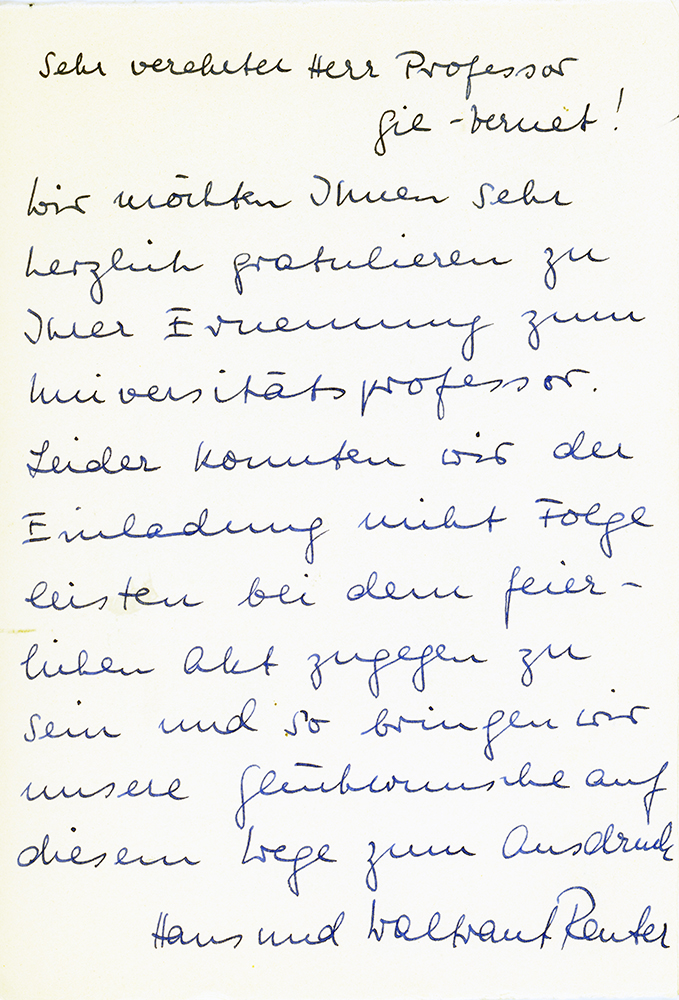 Sehr verehrter Herr Professor
Gil-Vernet!
Wir möchten Ihnen sehr
herzlich gratulieren zu
Ihrer Ernennung zum
Universitätsprofessor.
Leider konnten wir der
Einladung nicht Folge
leisten bei dem feier-
lichen Akt zugegen zu
sein und so bringen wir
unsere Glückwünsche auf
diesem Wege zum Ausdruck
Hans und Waltraut Reuter